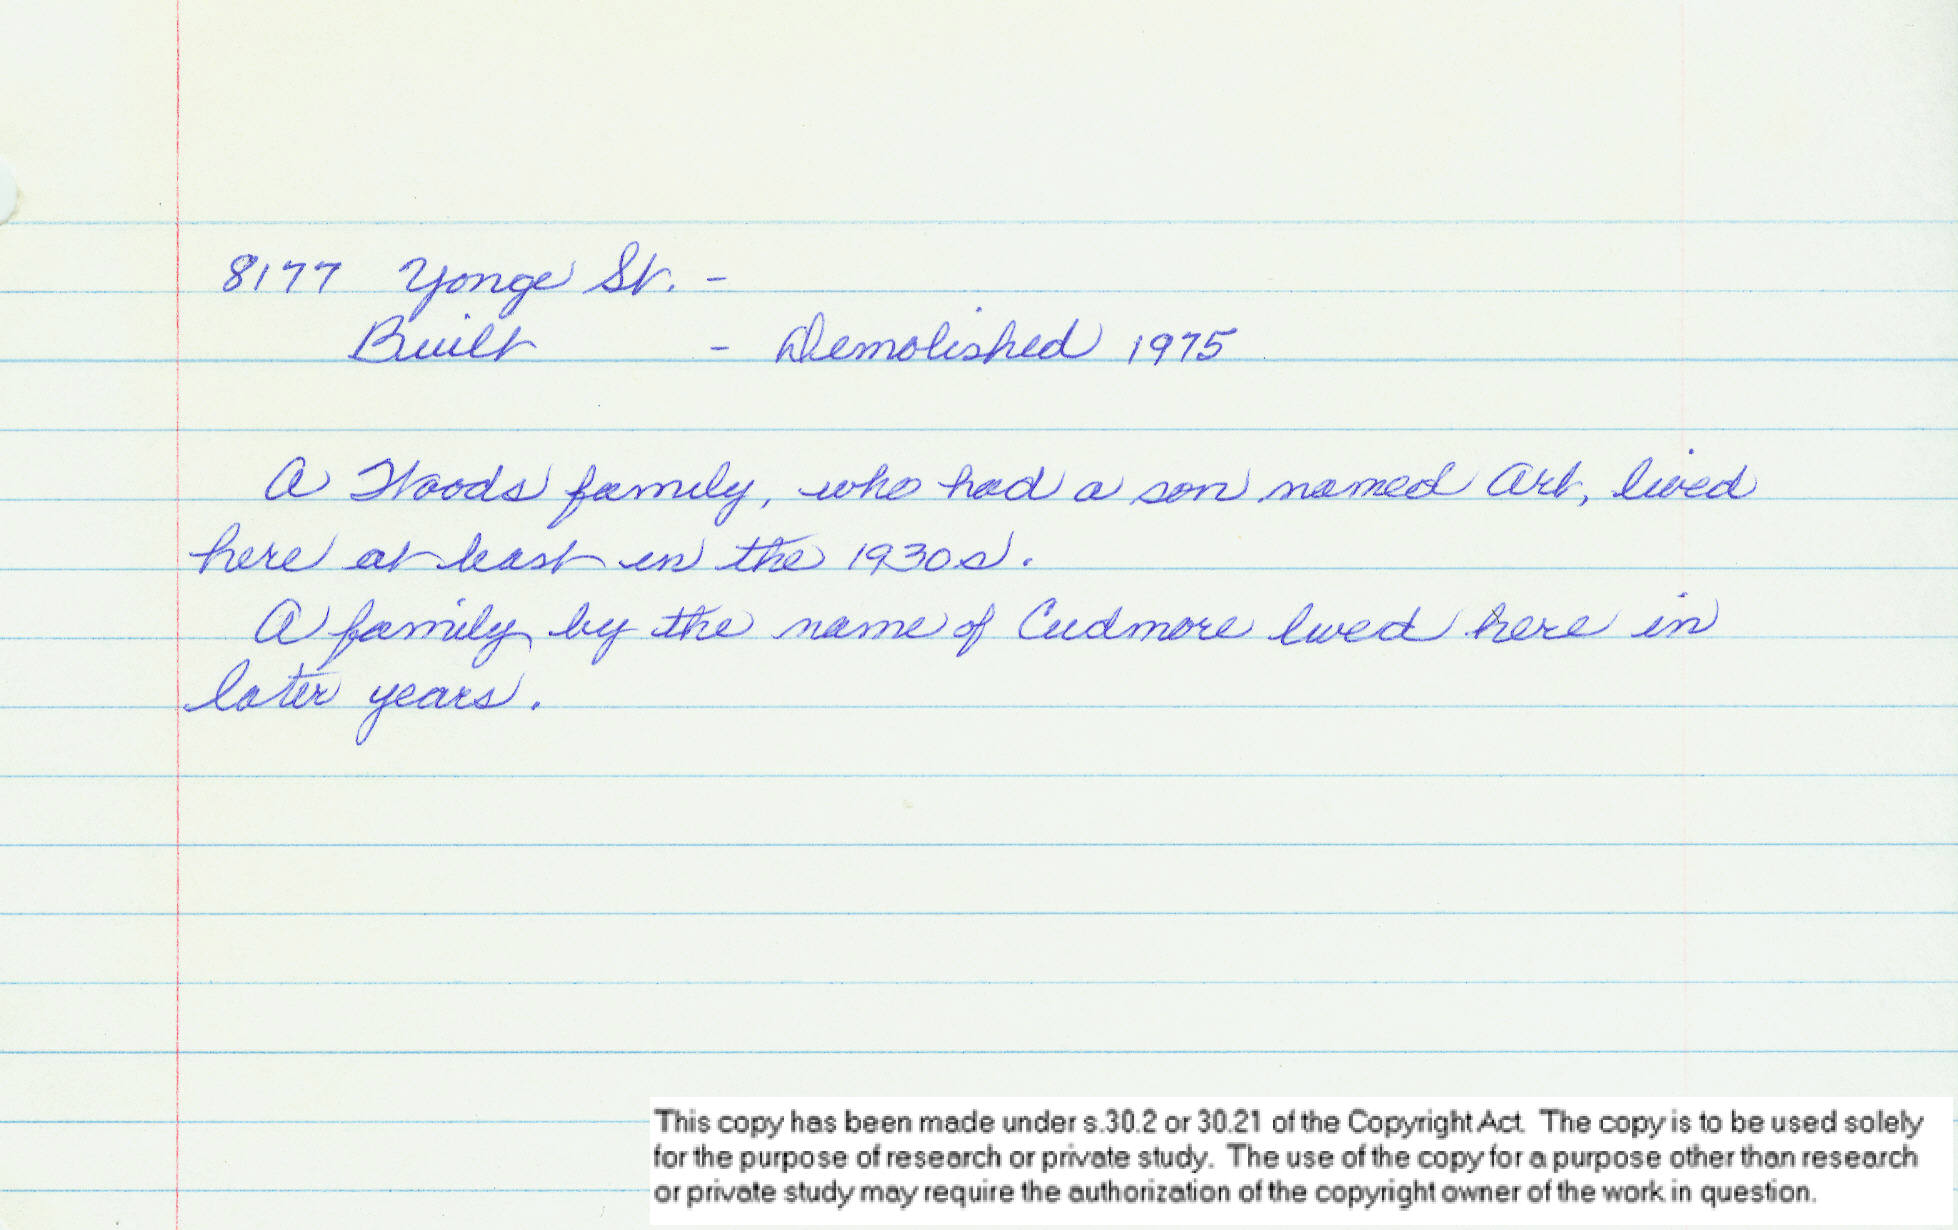 8177 Yonge St. -
Built - Demolished 1975
A Woods family, who had a son named Art, lived
here at least in the 1930s.
A family by the name of Cudmore lived here in
later years.
This copy has been made under s.30.2 or 30.21 of the Copyright Act. The copy is to be used solely
for the purpose of research or private study. The use of the copy for a purpose other than research
or private study may require the authorization of the copyright owner of the work in question.